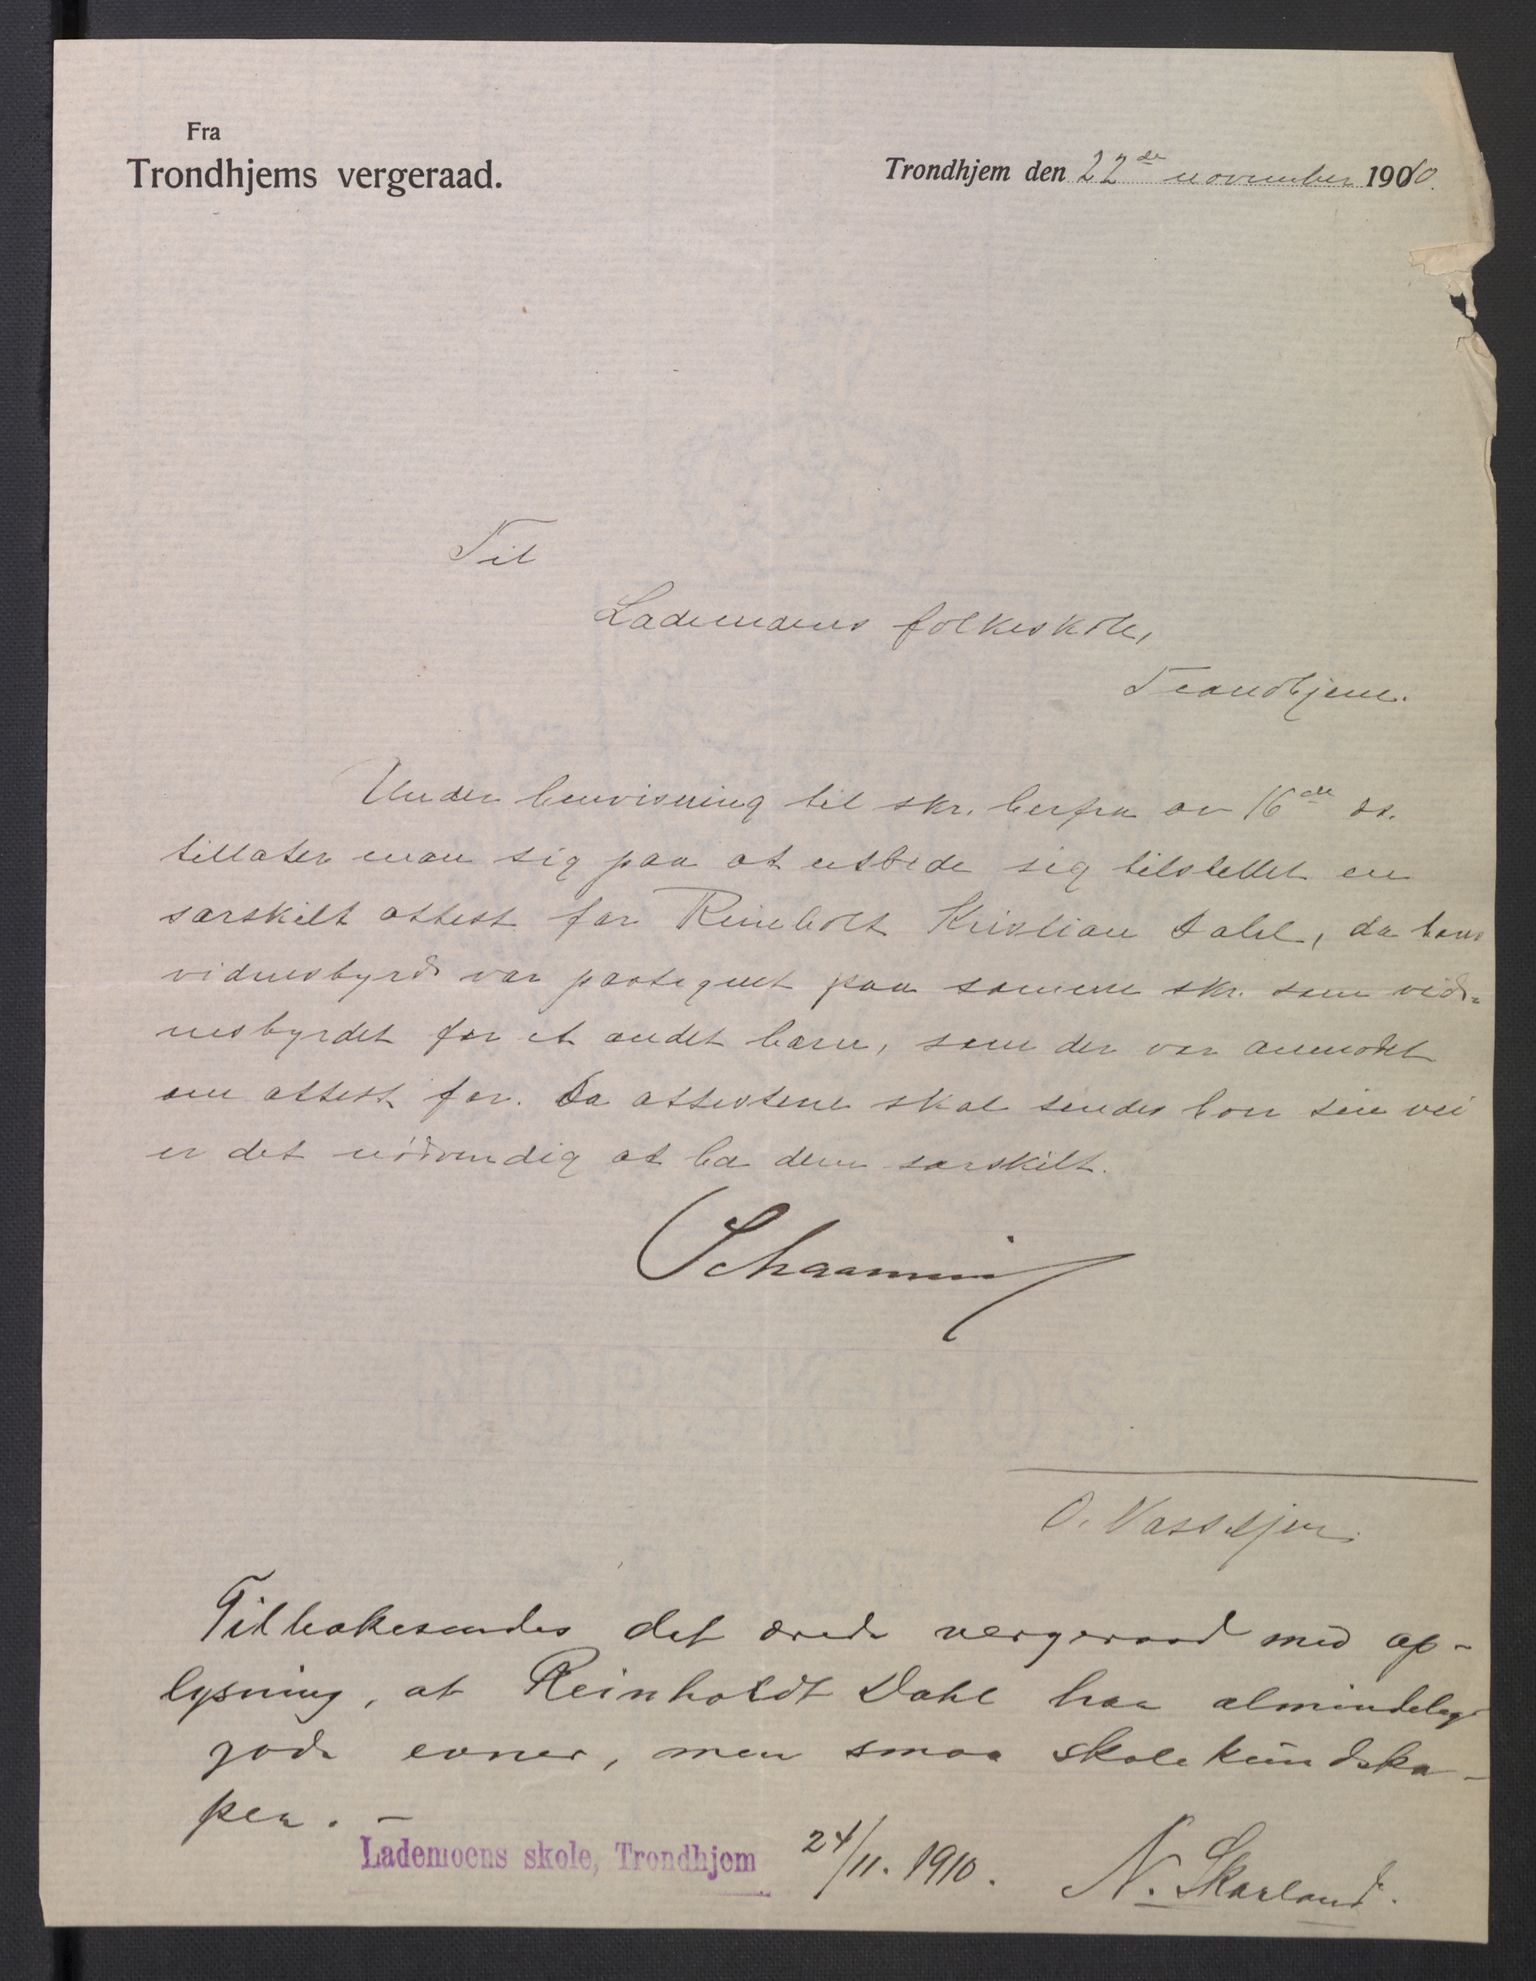 Fra
Trondhjems vergeraad.
Trondhjem den 22de november 1910.
Til
Lademoens folkeskole,
Trondhjem.
Under henvisning til skr. herfra av 16de ds.
tillater man sig paa at utbede sig tilstillet en
særskilt attest for Reinholt Kristian Dahl, da hans
vidnesbyrd var paategnet paa samme skr. som vid-
nesbyrdet for et andet barn, som der var anmodet
om attest for. Da attestene skal sendes hver sin vei
er det nødvendig at ha dem særskilt.
Schaanning
O. Vasseljen.
Tilbakesendes det ærede vergeraad med op-
lysning, at Reinholdt Dahl har almindelig
gode evner, men smaa skolekundska-
per. -
Lademoens skole, Trondhjem
24/11. 1910.
N. Skarland.